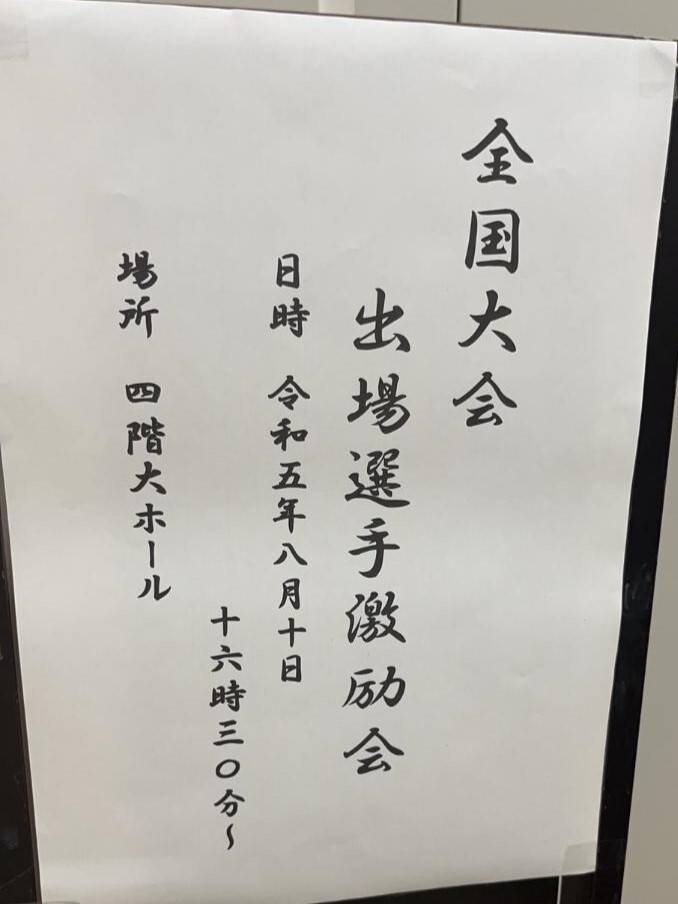 全国大会
出場選手激励会
日時 令和五年八月十日
十六時三〇分~
場所 四階大ホール